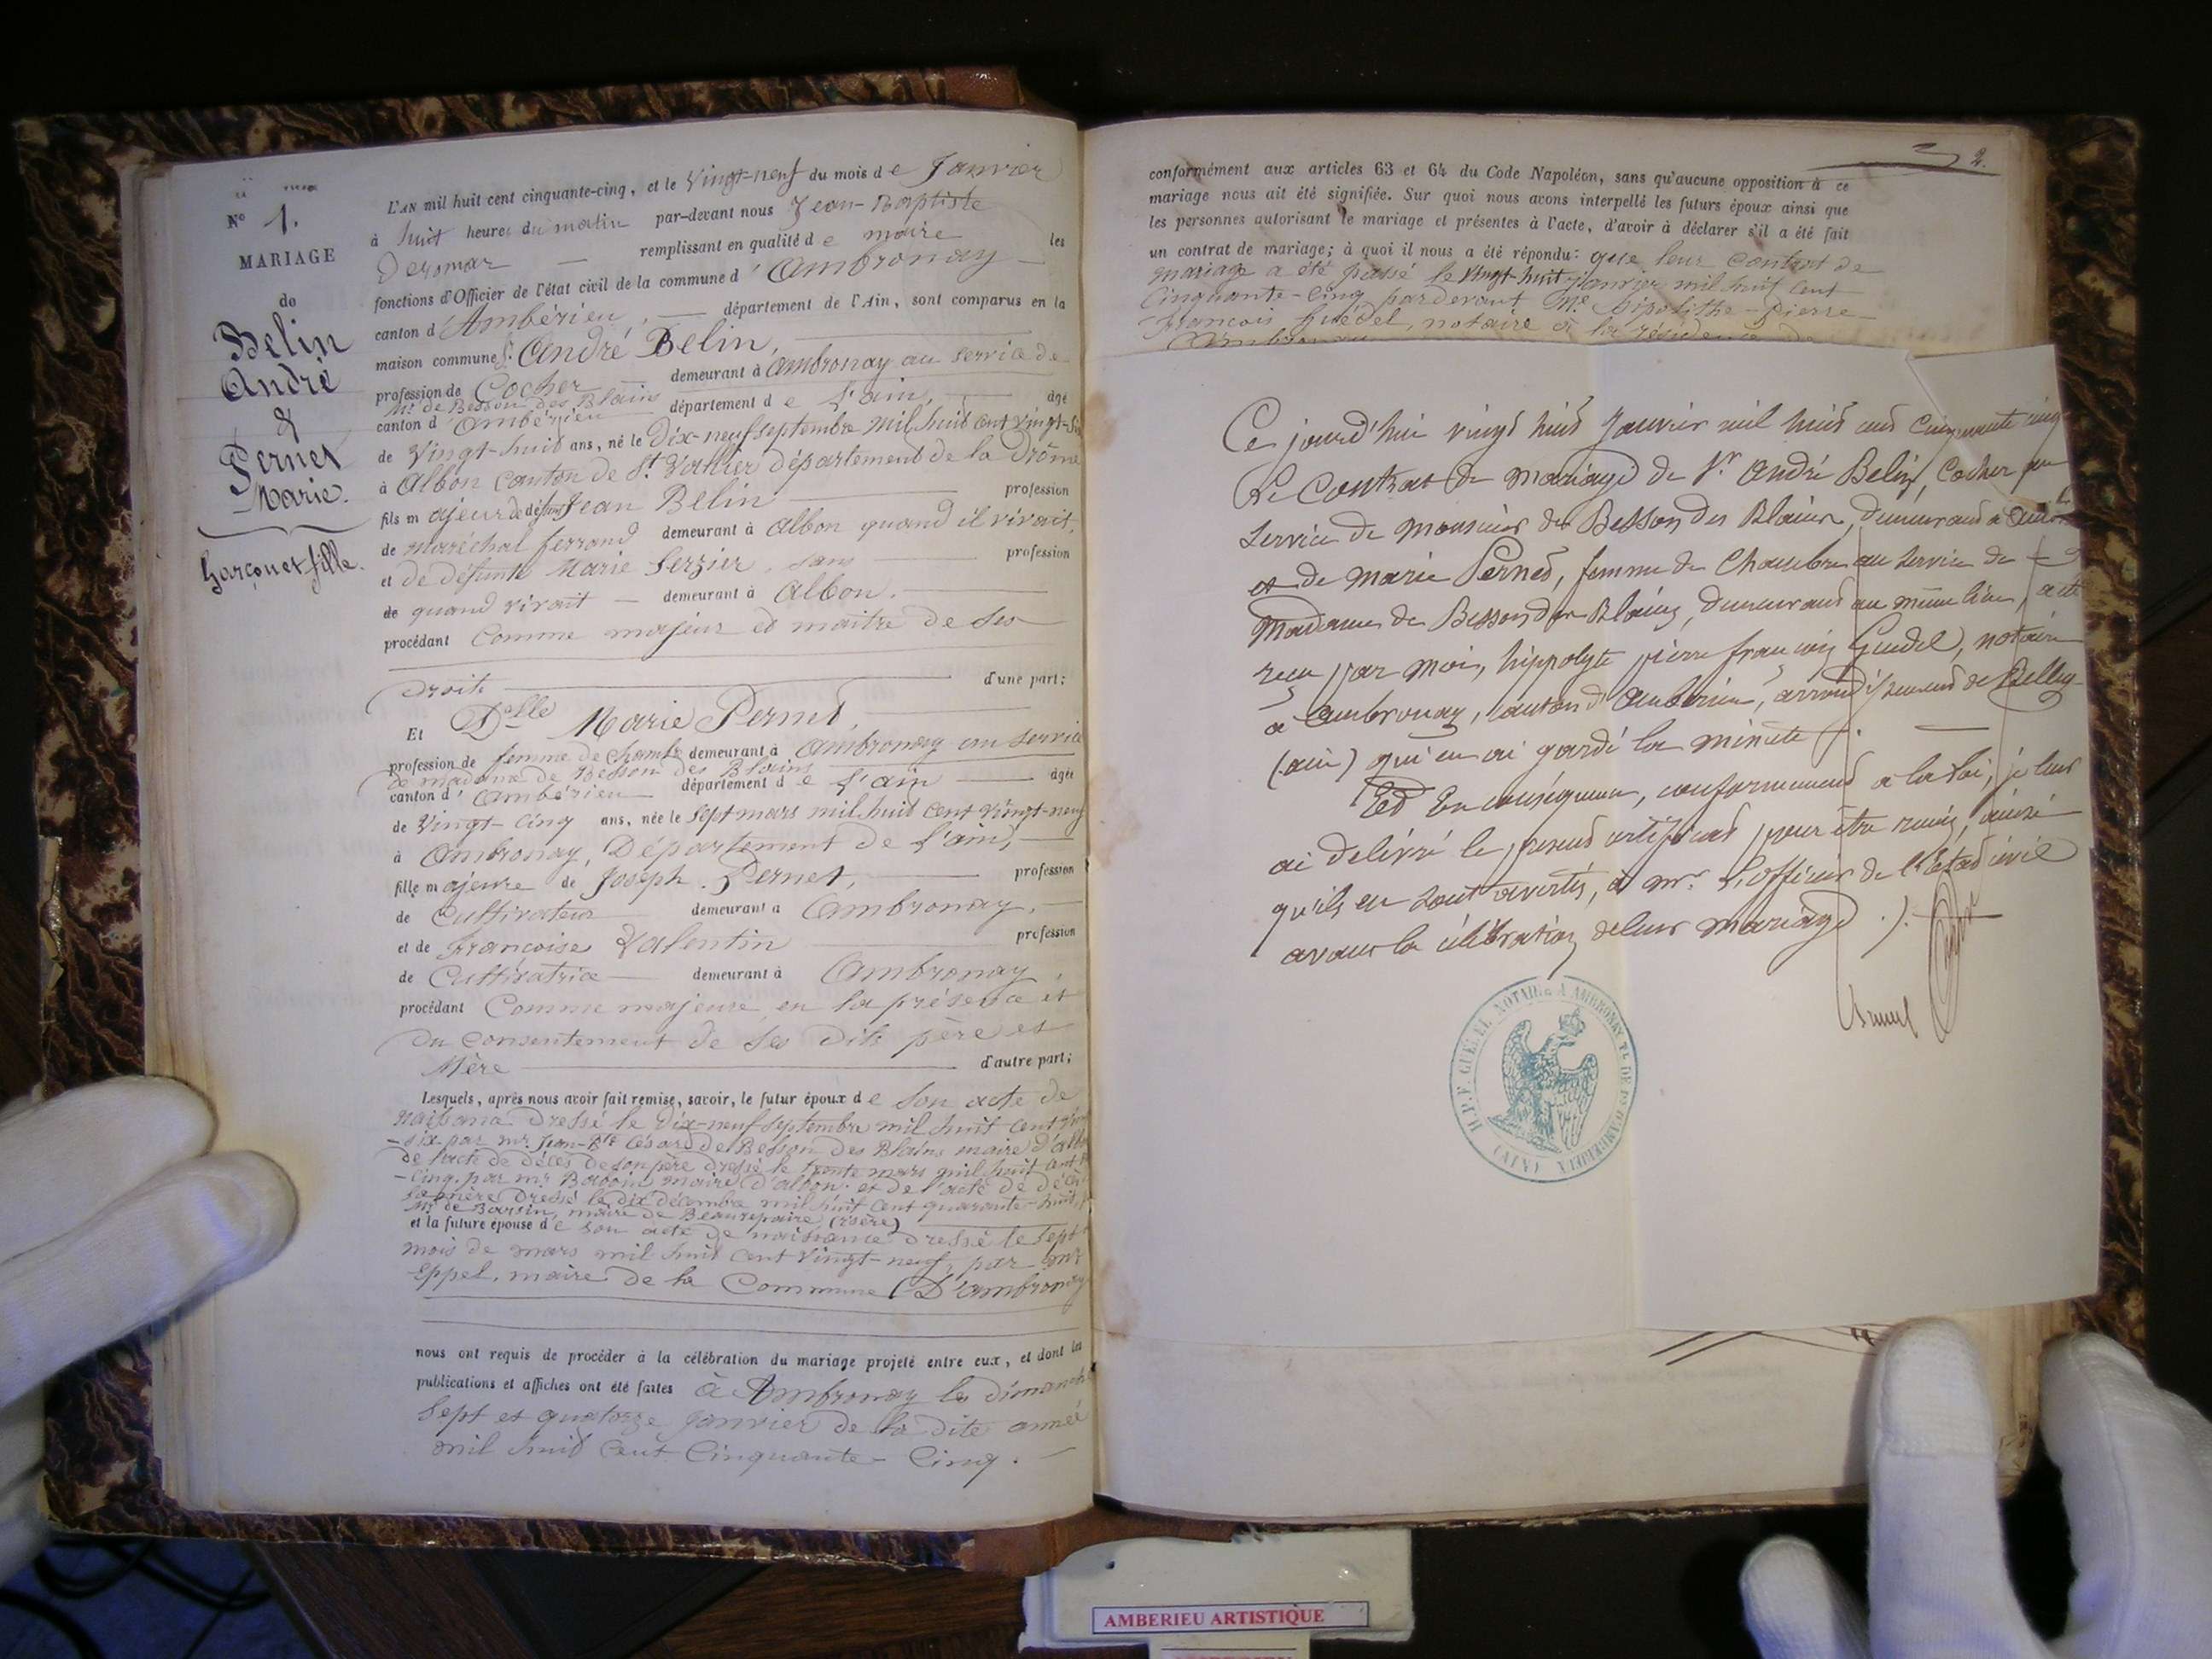 N° 1.
MARIAGE
de
Belin
André
&
Pernet
Marie.
Garçon et fille.
L'AN mil huit cent cinquante-cinq, et le Vingt-neuf du mois de Janvier
à huit heures du matin par-devant nous Jean-Baptiste
Deromar — remplissant en qualité de maire les
fonctions d'Officier de l'état civil de la commune d'Ambronay —
canton d'Ambérieu, — département de l'Ain, sont comparus en la
maison commune Sr. André Belin,
profession de Cocher demeurant à Ambronay au service de
Mr. de Besson des Blains
canton d'Ambérieu département de l'ain, âgé
de Vingt-huit ans, né le Dix-neuf septembre mil huit cent vingt-six
à Albon canton de St. Vallier département de la Drôme
fils majeur de défunt Jean Belin profession
de maréchal ferrand demeurant à Albon quand il vivait,
et de défunte Marie Serzier, sans profession
de quand vivait — demeurant à Albon.
procédant Comme majeur et maitre de ses
droits d'une part;
Et Delle Marie Pernet,
profession de femme de chambr demeurant à Ambronay au service
de madame de Besson des Blains
canton d'Ambérieu département de l'ain âgée
de Vingt-cinq ans, née le sept mars mil huit cent vingt-neuf
à Ambronay, Département de l'ain,
fille majeure de Joseph Pernet, profession
de Cultivateur demeurant à Ambronay,
et de Françoise Valentin profession
de Cultivatrice demeurant à Ambronay,
procédant Comme majeure en la présence et
du consentement de ses dits père et
Mère d'autre part;
Lesquels, après nous avoir fait remise, savoir, le futur époux de son acte de
naissance dressé le dix-neuf septembre mil huit cent vingt
-six par mr. Jean-Bte César de Besson des Blains maire d'albon
de l'acte de décès de son père dressé le trente mars mil huit cent
-cinq, par mr Baboin maire d'albon et de l'acte de décès
sa mère dressé le dix décembre mil huit cent quarante-huit,
Mr. de Barrin, maire de Beaurepaire (isère)
et la future épouse de son acte de naissance dressé le sept
mois de mars mil huit cent vingt-neuf, par mr
Eppel, maire de la Commune D'ambronay
nous ont requis de procéder à la célébration du mariage projeté entre eux, et dont les
publications et affiches ont été faites à Ambronay les dimanches
Sept et quatorze janvier de la dite année
mil huit cent Cinquante-Cinq.
2.
conformément aux articles 63 et 64 du Code Napoléon, sans qu'aucune opposition à ce
mariage nous ait été signifiée. Sur quoi nous avons interpellé les futurs époux ainsi que
les personnes autorisant le mariage et présentes à l'acte, d'avoir à déclarer s'il a été fait
un contrat de mariage; à quoi il nous a été répondu: que leur Contrat de
mariage a été passé le vingt-huit janvier mil huit cent
Cinquante-cinq pardevant Me. hipolithe-Pierre-
François Guédel, notaire à la résidence de
Ambronay
Ce jourd'hui vingt huit Janvier mil huit cent cinquante cinq
Le Contrat de mariage de Sr. André Belin, Cocher au
service de Monsieur de Besson des Blains, demeurant à
et de Marie Pernet, femme de Chambre au service de
Madame de Besson des Blains, demeurant au même lieu, a été
reçu par moi, hippolyte pierre françois Guédel, notaire
à Ambronay, canton d'Ambérieu, arrondissement de Belley
(ain) qui en ai gardé la minute.
Et En conséquence, conformément à la loi, je leur
ai délivré le présent certificat pour être remis, ainsi
qu'ils en sont avertis, à Mr. L'officier de l'État civil
avant la célébration de leur mariage.
H.P.F. GUEDEL NOTAIRE A AMBRONAY Tn DE Px D'AMBERIEUX (AIN)
AMBERIEU ARTISTIQUE